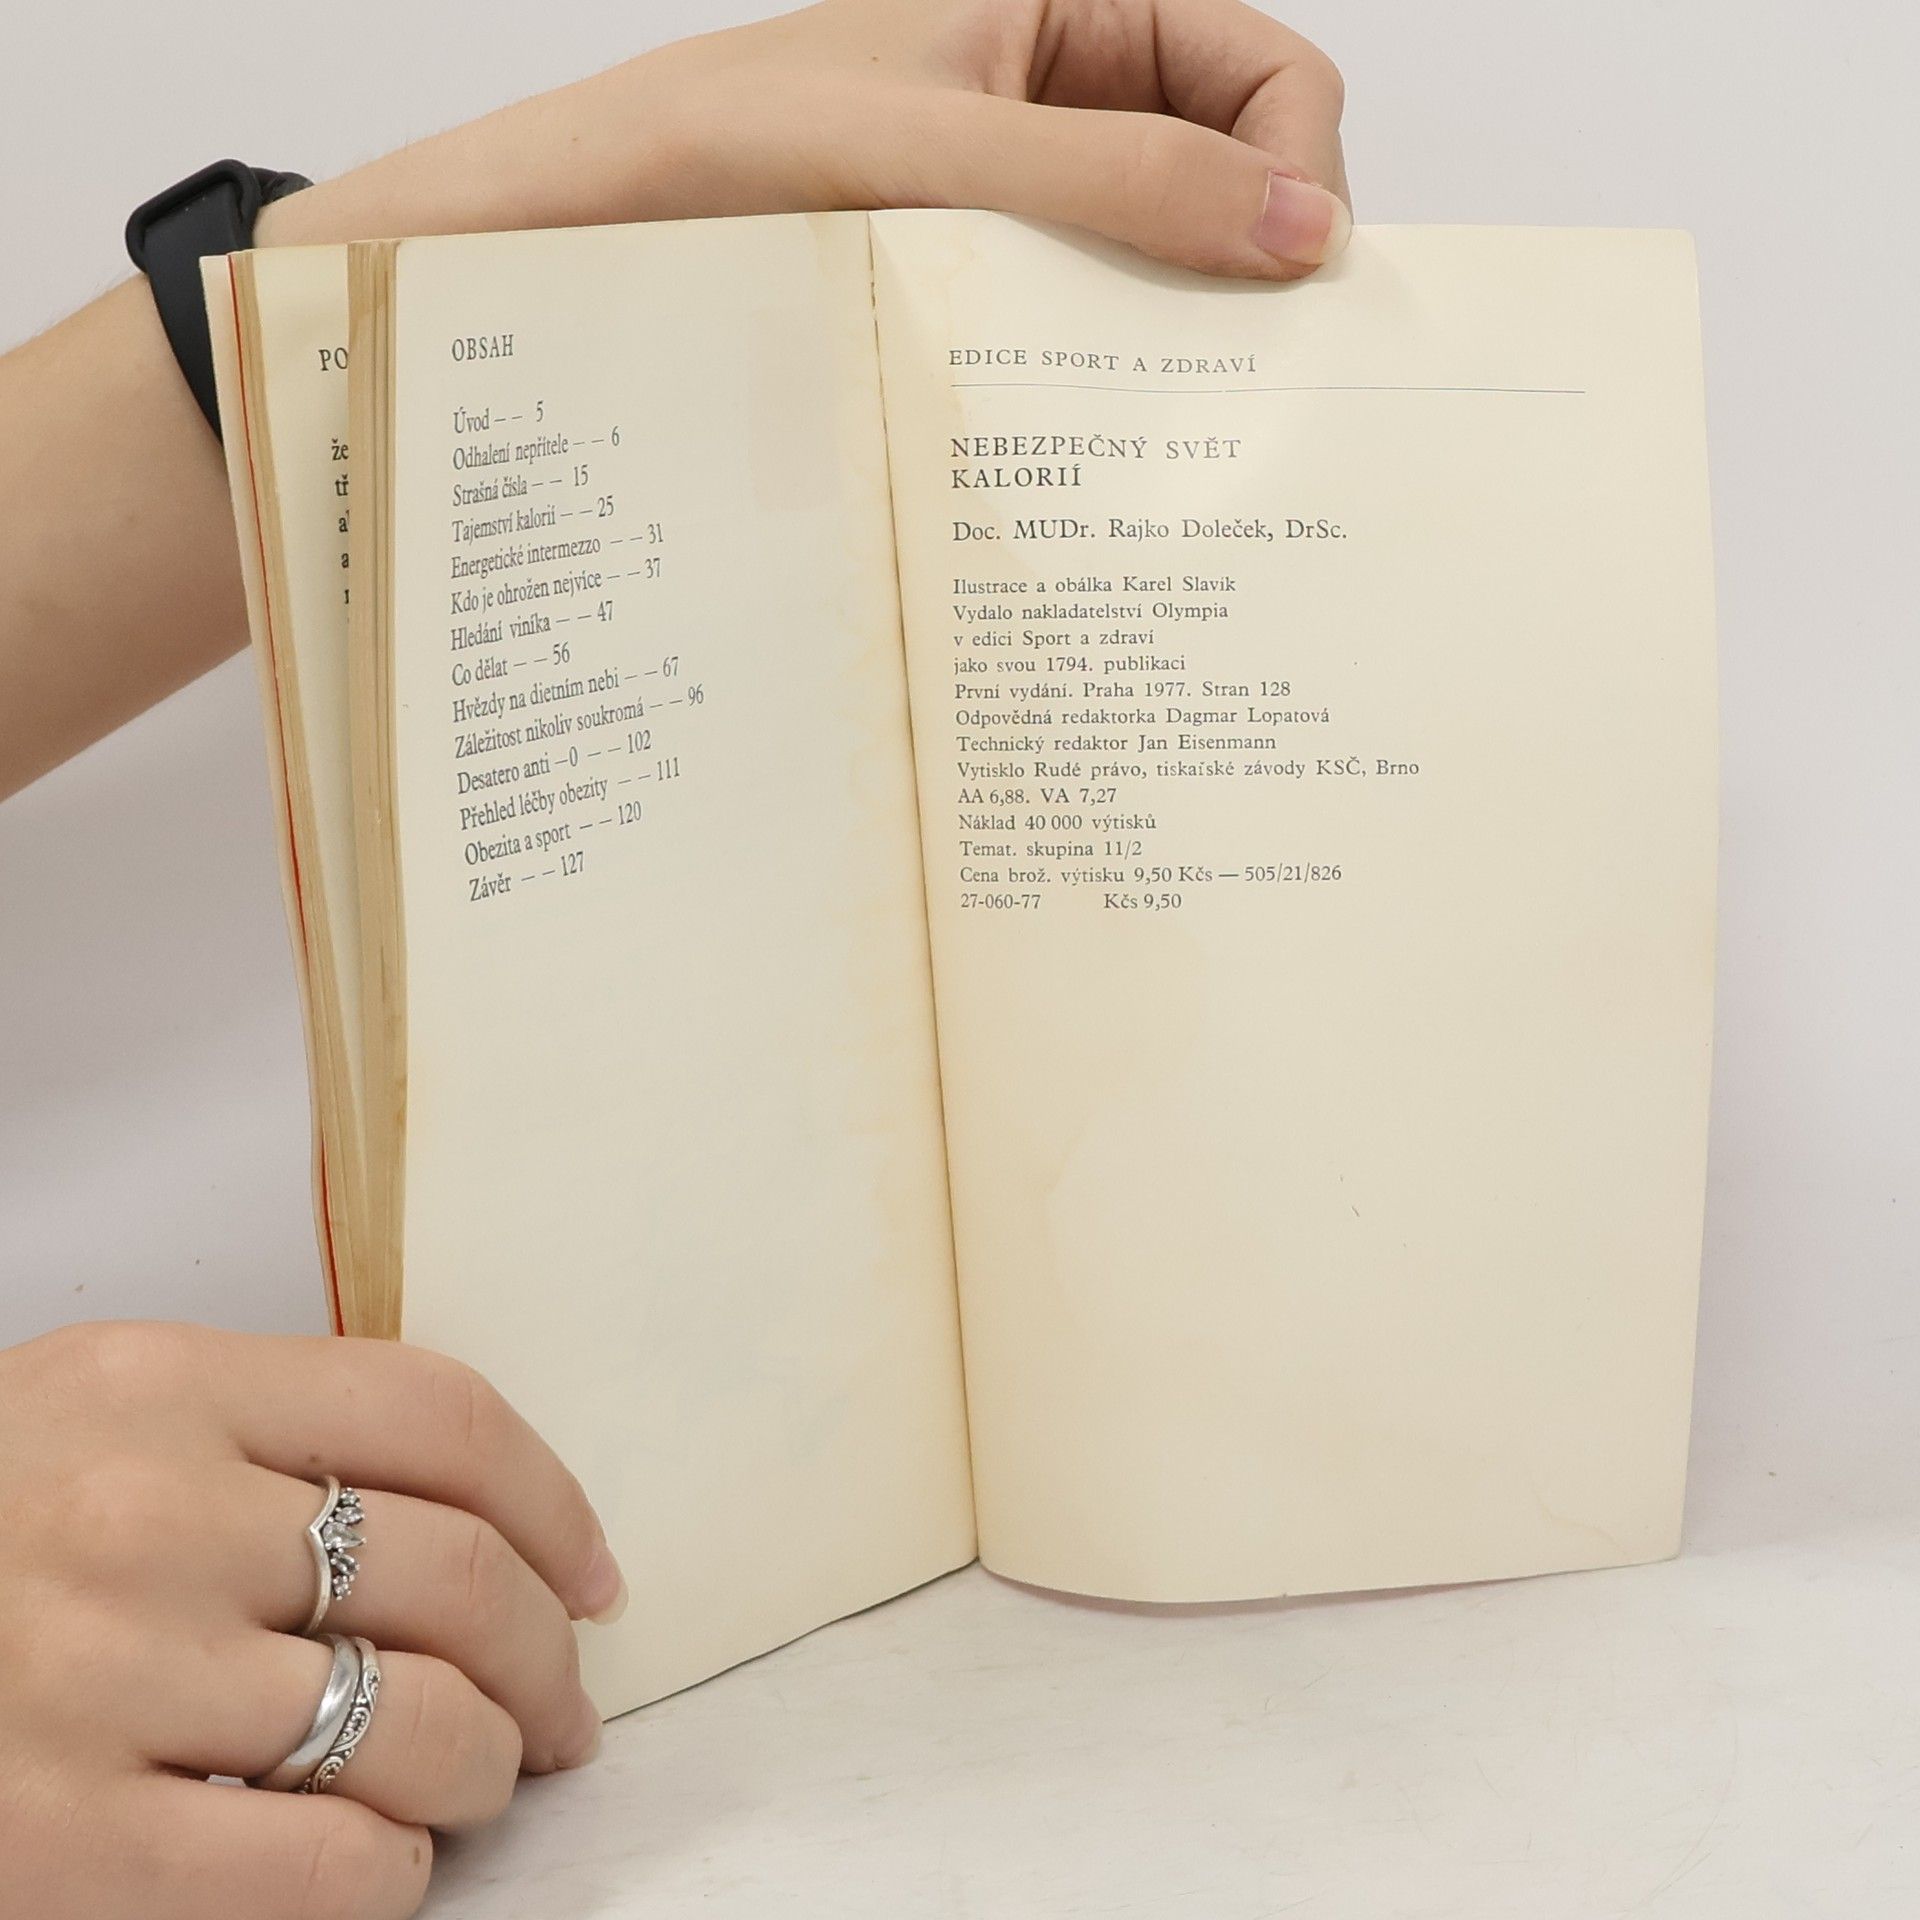 PO
že
OBSAH
Úvod — — 5
Odhalení nepřítele — — 6
Strašná čísla — — 15
Tajemství kalorií — — 25
Energetické intermezzo — — 31
Kdo je ohrožen nejvíce — — 37
Hledání viníka — — 47
Co dělat — — 56
Hvězdy na dietním nebi — — 67
Záležitost nikoliv soukromá — — 96
Desatero anti —0 — — 102
Přehled léčby obezity — — 111
Obezita a sport — — 120
Závěr — — 127
EDICE SPORT A ZDRAVÍ
NEBEZPEČNÝ SVĚT
KALORIÍ
Doc. MUDr. Rajko Doleček, DrSc.
Ilustrace a obálka Karel Slavík
Vydalo nakladatelství Olympia
v edici Sport a zdraví
jako svou 1794. publikaci
První vydání. Praha 1977. Stran 128
Odpovědná redaktorka Dagmar Lopatová
Technický redaktor Jan Eisenmann
Vytisklo Rudé právo, tiskařské závody KSČ, Brno
AA 6,88. VA 7,27
Náklad 40 000 výtisků
Temat. skupina 11/2
Cena brož. výtisku 9,50 Kčs — 505/21/826
27-060-77 Kčs 9,50